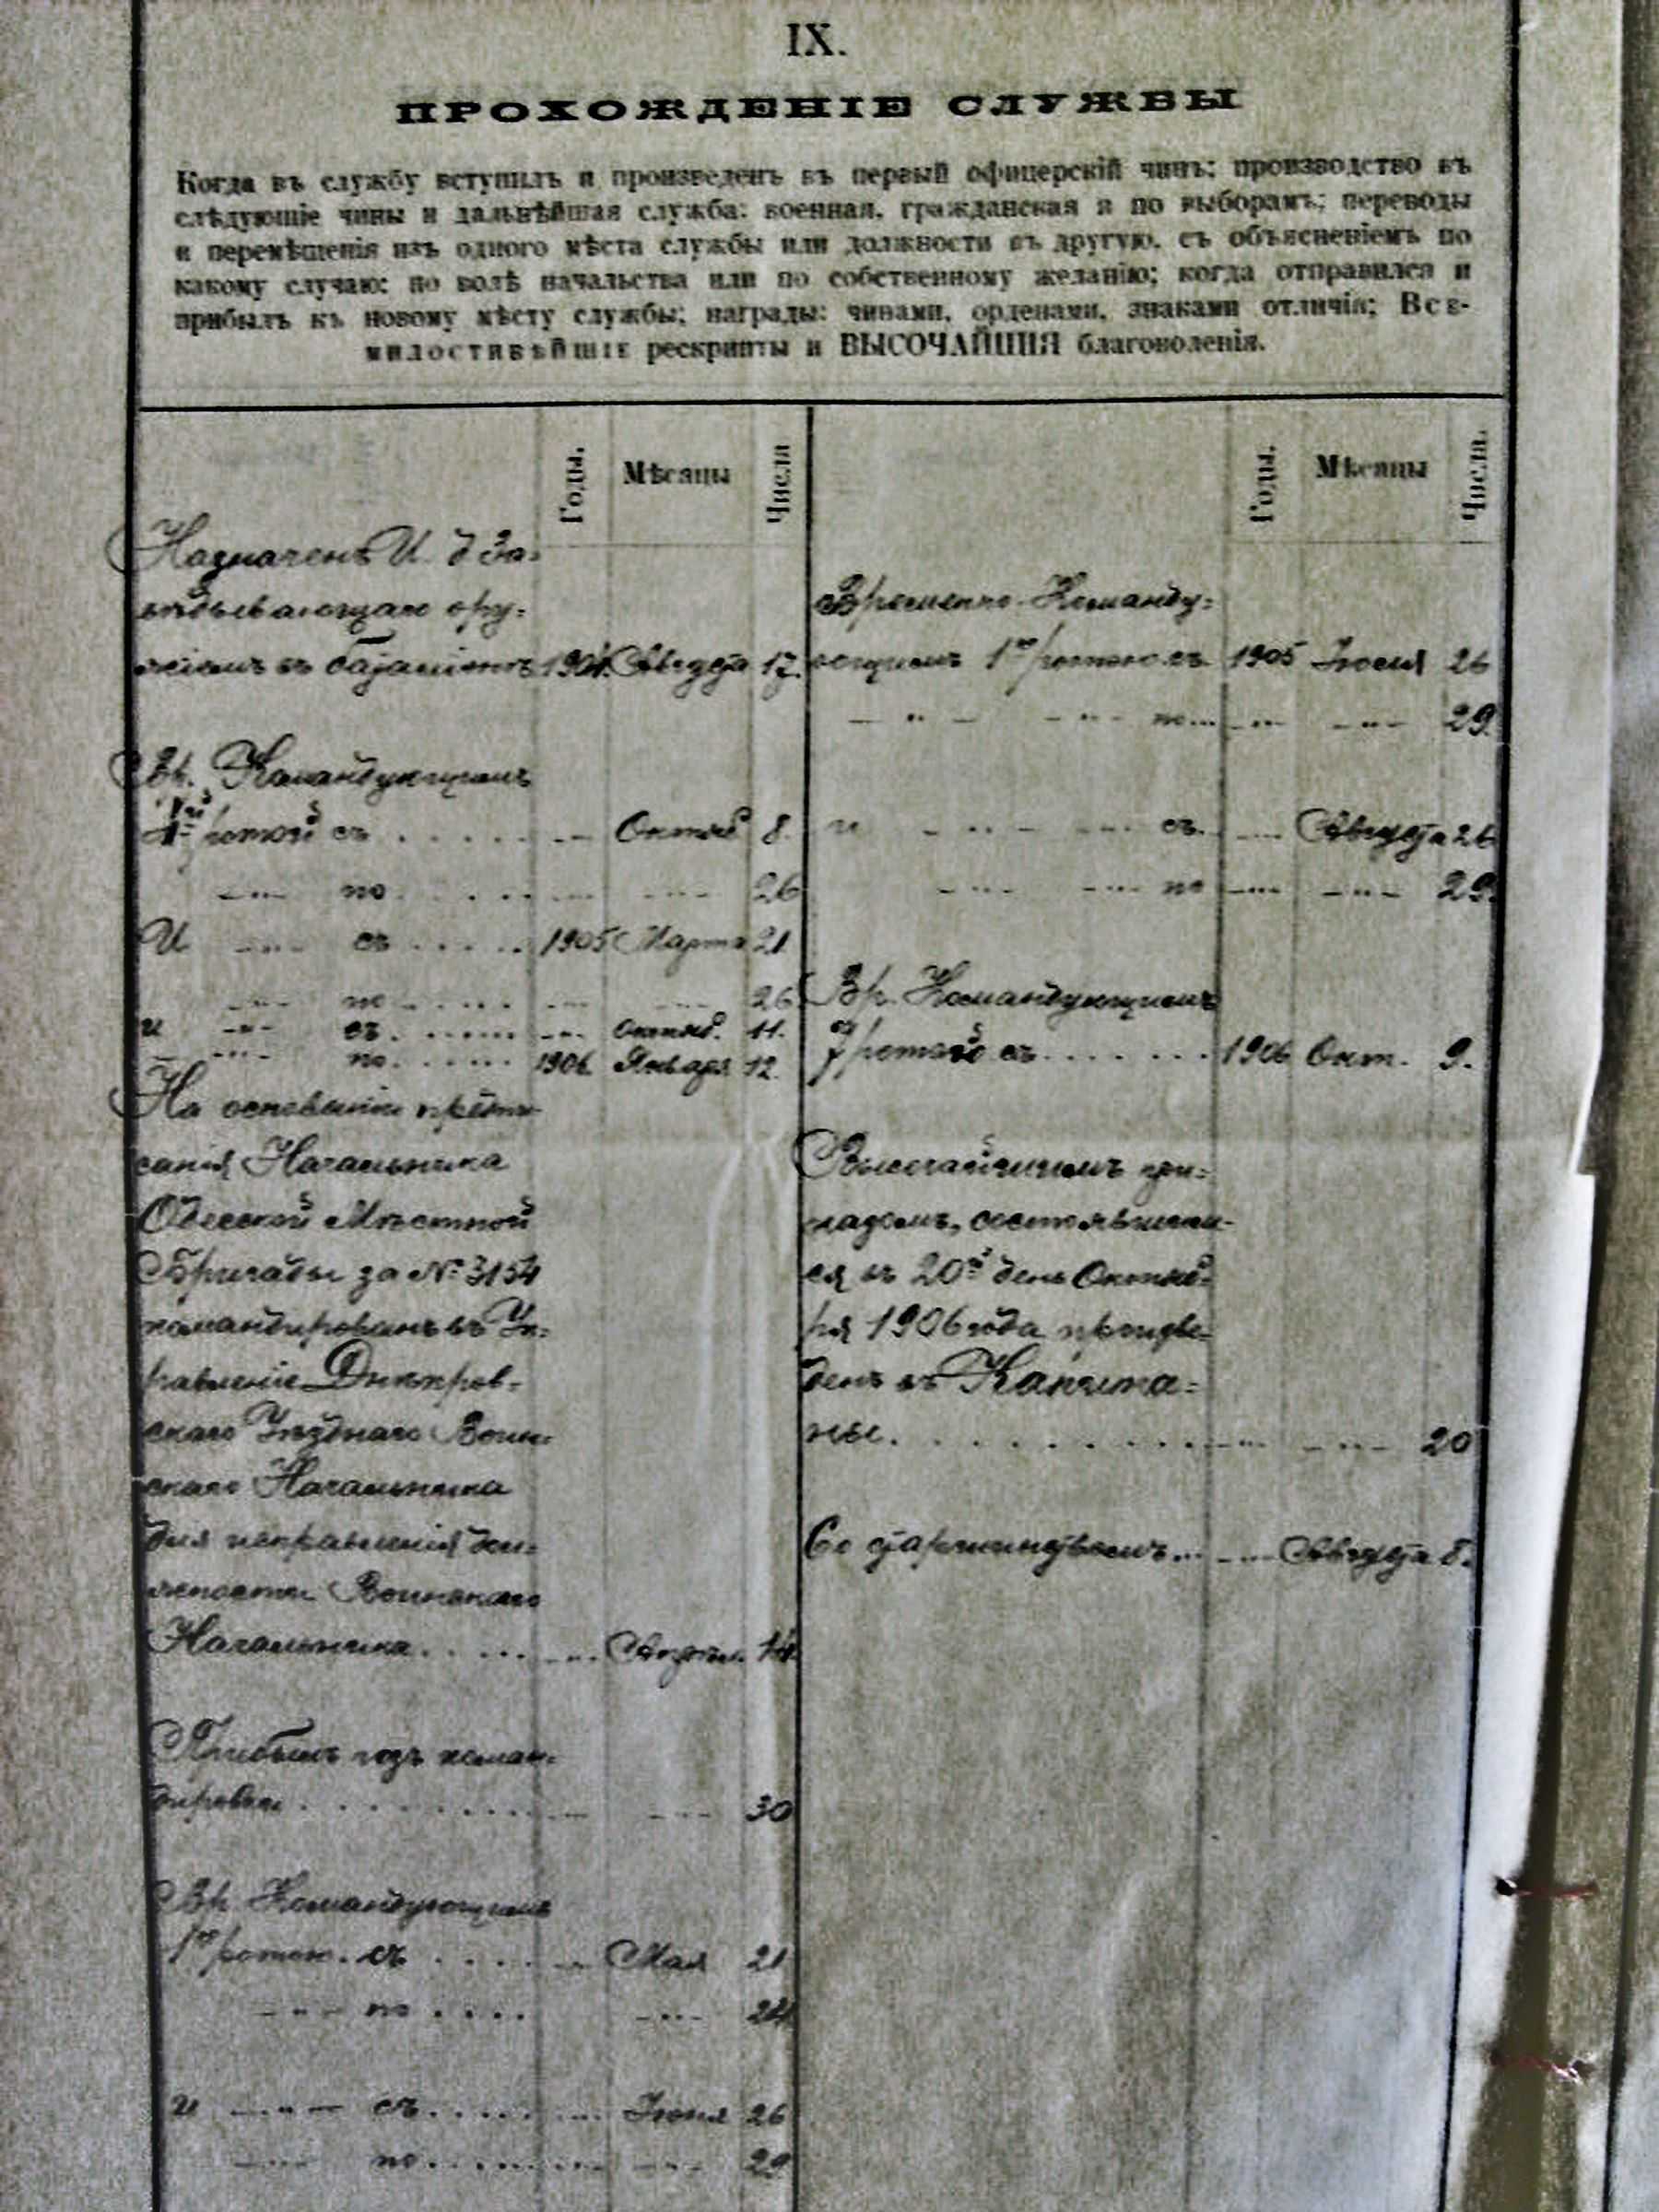 IX.
ПРОХОЖДЕНІЕ СЛУЖБЫ
Когда въ службу вступилъ и произведенъ въ первый офицерскій чинъ; производство въ
слѣдующіе чины и дальнѣйшая служба: военная, гражданская и по выборамъ; переводы
и перемѣщенія изъ одного мѣста службы или должности въ другую, съ объясненіемъ по
какому случаю: по волѣ начальства или по собственному желанію; когда отправился и
прибылъ къ новому мѣсту службы; награды: чинами, орденами, знаками отличія; Все-
милостивѣйшіе рескрипты и ВЫСОЧАЙШІЯ благоволенія.
Годы. Мѣсяцы Числа
Назначенъ И. д За-
вѣдывающаго ору-
жіемъ въ баталіонѣ 1904 Августа 17.
Вр. Командующимъ
ротой съ . . . . . — Октяб 8.
— " — по . . . . — " — 26
И — " — съ . . . . . 1905 Марта 21
— " — по . . . . . — " — 26
и — " — съ . . . . . — " — Октяб. 11.
— " — по . . . . . 1906 Января 12.
На основаніи предпи-
санія Начальника
Одесской Мѣстной
Бригады за № 3154
командированъ въ Уп-
равленіе Днѣпров-
скаго Уѣзднаго Воин-
скаго Начальника
для исправленія дол-
жности Воинскаго
Начальника . . . . . — " — Апрѣл. 14.
Прибылъ изъ коман-
дировки . . . . . . . . — " — 30
Вр Командующимъ
1ю ротою. съ . . . . — Мая 21
— " — по . . . . — " — 24
и — " — съ . . . . . — Іюня 26
— " — по . . . . . . — " — 29
Годы. Мѣсяцы Числа.
Временно-Команду-
ющимъ 1ю ротою съ 1905 Іюля 26
— " — — " — по... — " — — " — 29.
и — " — — " — съ. — " — Августа 26
— " — — " — по — " — — " — 29.
Вр. Командующимъ
7ой ротой съ . . . . . . . 1906 Окт. 9.
Высочайшимъ при-
казомъ, состоявшим-
ся въ 20й день Октяб-
ря 1906 года произве-
денъ въ Капита-
ны. . . . . . . . . . . — " — — " — 20
Со старшинствомъ... — " — Августа 5.